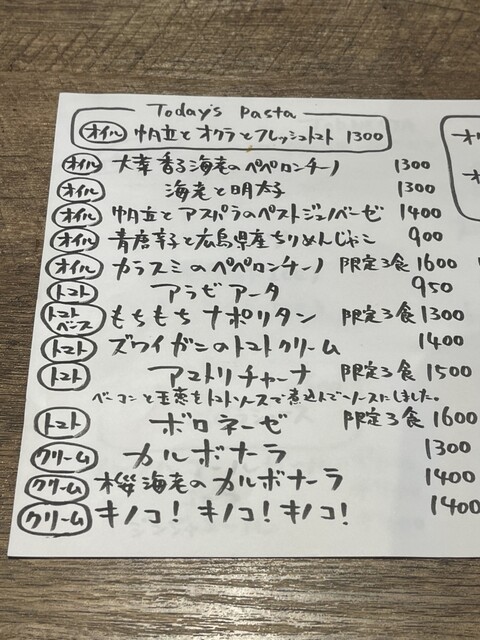 Today's Pasta
オイル 帆立とオクラとフレッシュトマト 1300
オイル 大葉香る海老のペペロンチーノ 1300
オイル 海老と明太子 1300
オイル 帆立とアスパラのペストジェノバーゼ 1400
オイル 青唐辛子と広島県産ちりめんじゃこ 900
オイル カラスミのペペロンチーノ 限定3食 1600
トマト アラビアータ 950
トマトベース もちもちナポリタン 限定3食 1300
トマト ズワイガニのトマトクリーム 1400
トマト アマトリチャーナ 限定3食 1500
ベーコンと玉葱をトマトソースで煮込んでソースにしました。
トマト ボロネーゼ 限定3食 1600
クリーム カルボナーラ 1300
クリーム 桜海老のカルボナーラ 1400
クリーム キノコ! キノコ! キノコ! 1400